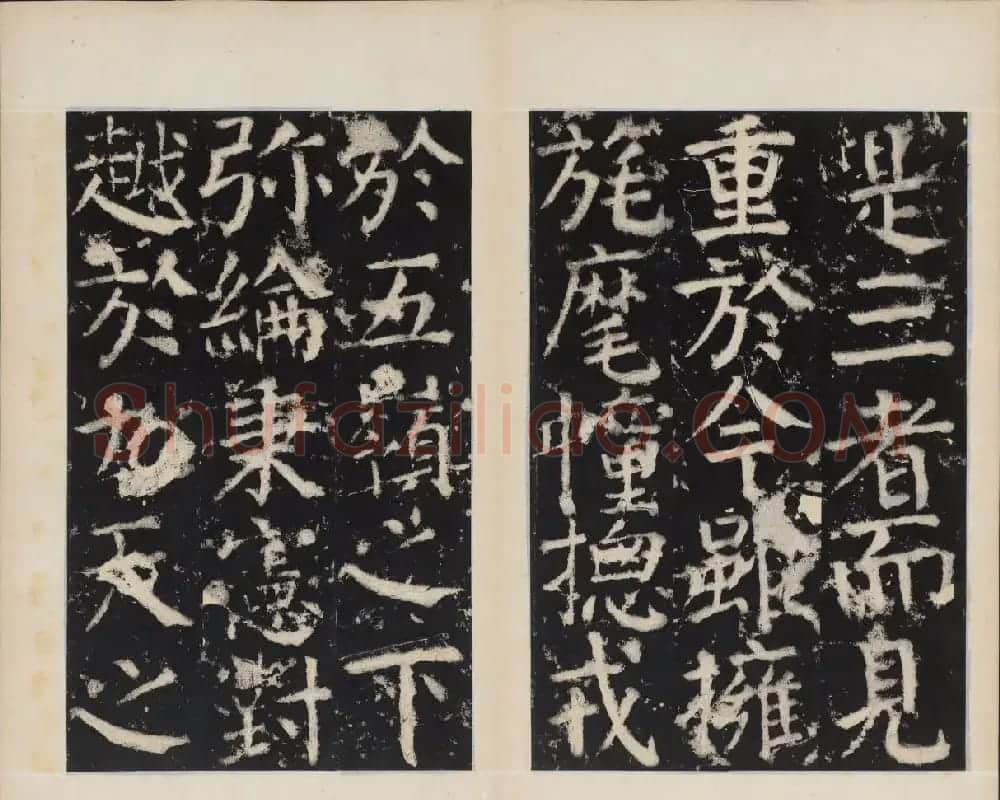 是三者而見
重於今雖擁
旄麾幢摠戎
於五嶺之下
弥綸秉憲對
越於 天之
Shufaziliao.COM